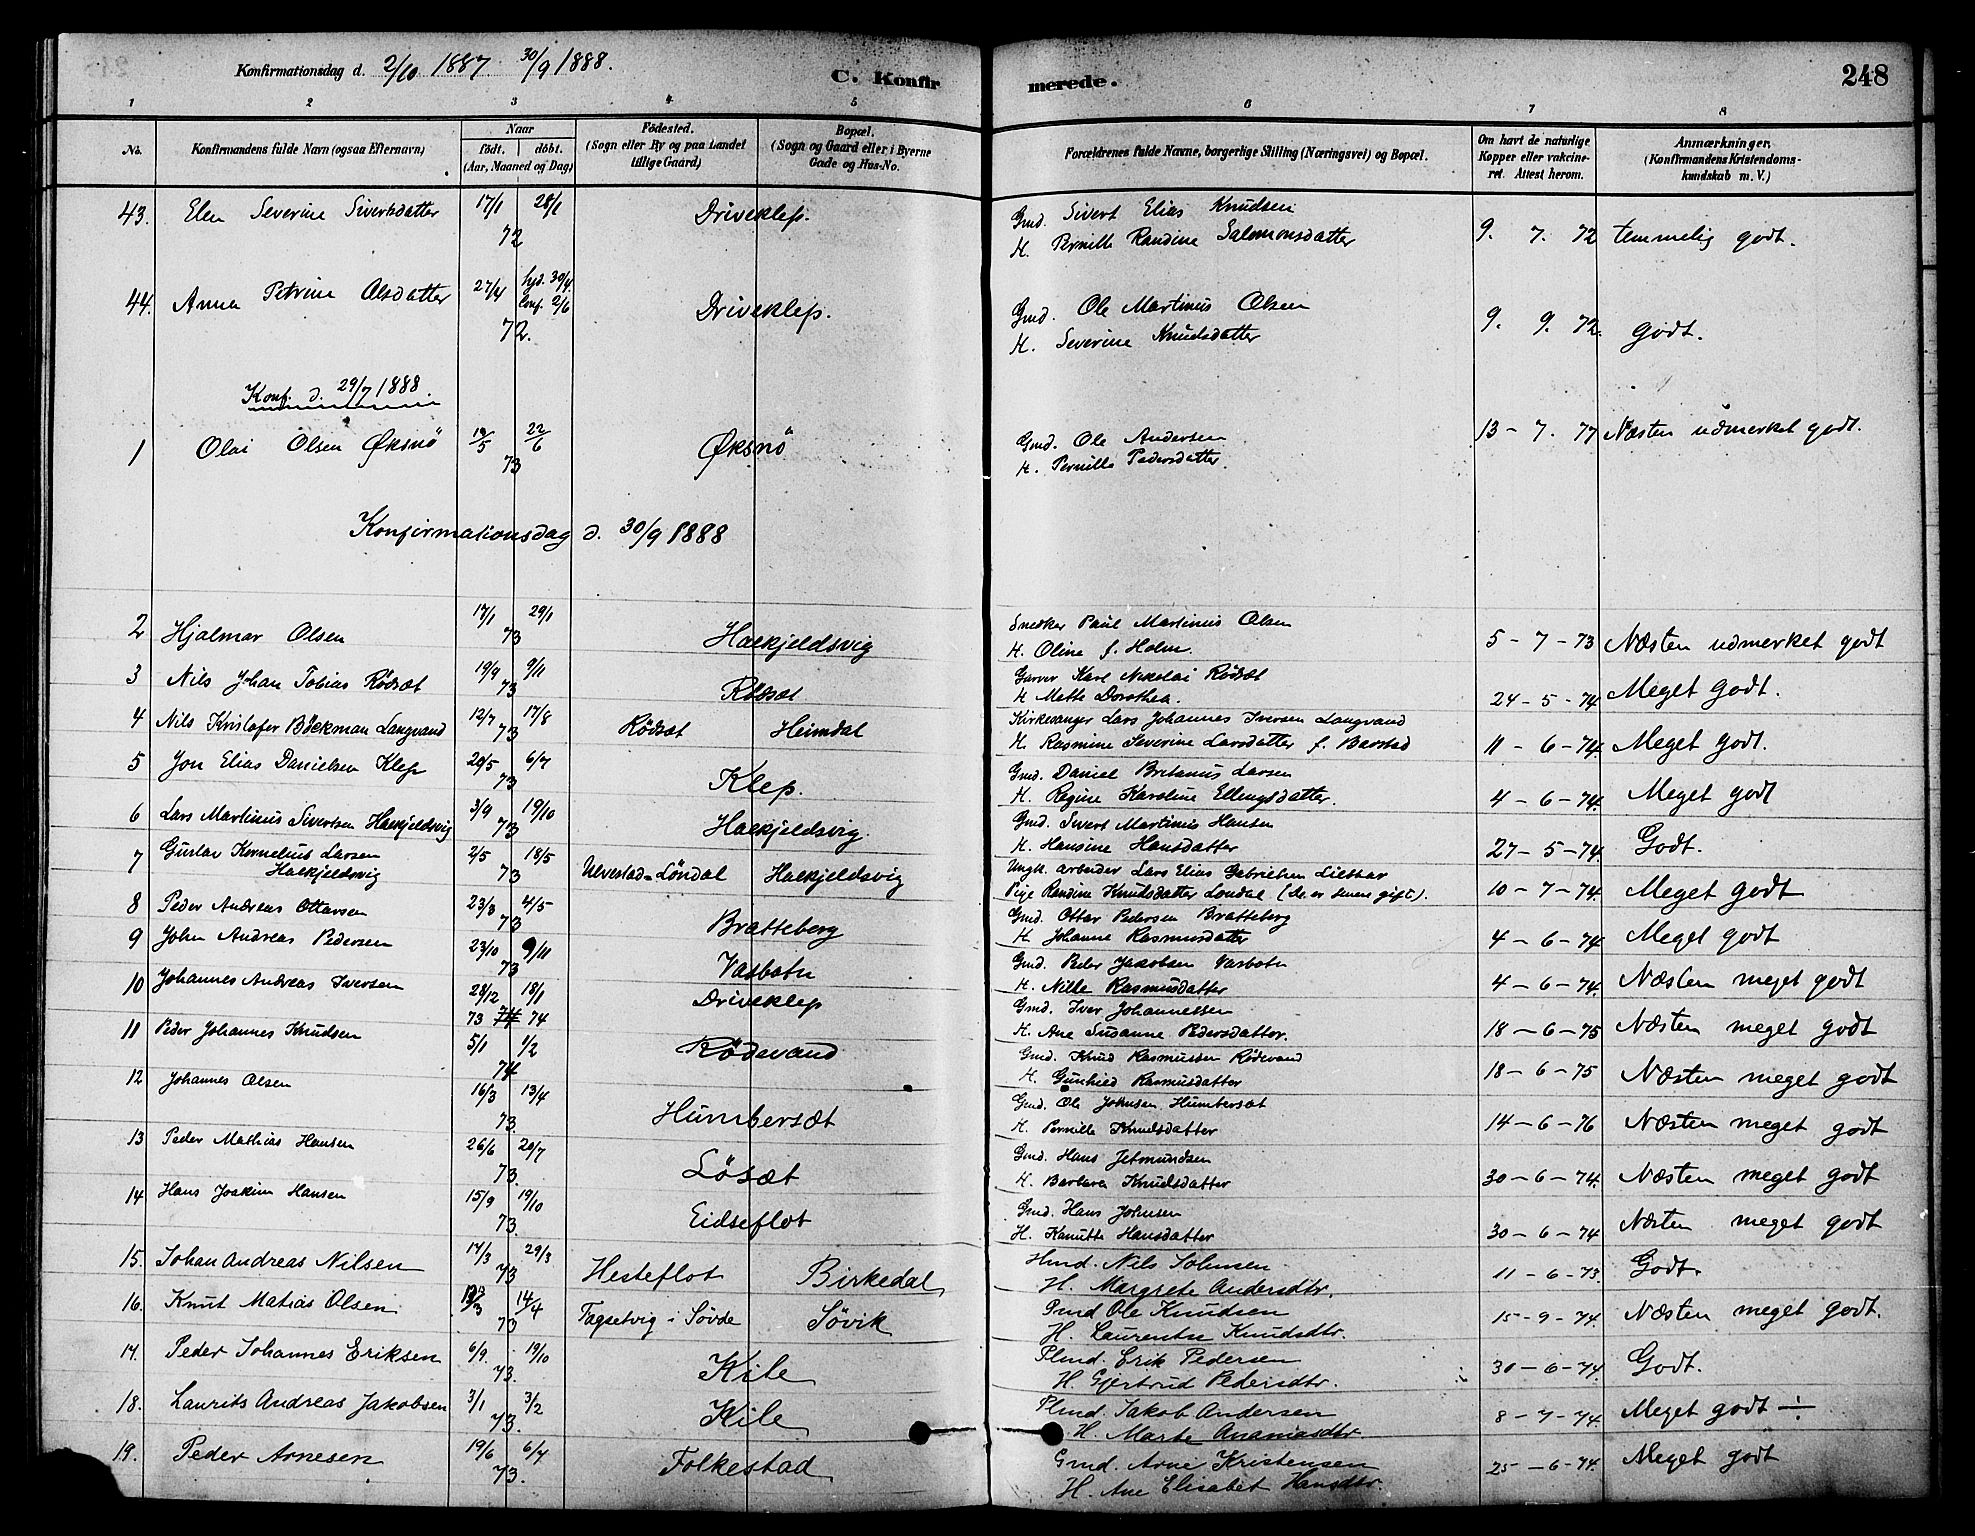 Konfirmationsdag d. 2/10 1887 30/9 1888.
C. Konfirmerede.
248
1 2 3 4 5 6 7 8
No.
Konfirmandens fulde Navn (ogsaa Efternavn)
Naar
født. døbt.
(Aar, Maaned og Dag)
Fødested.
(Sogn eller By og paa Landet
tillige Gaard)
Bopæl.
(Sogn og Gaard eller i Byerne
Gade og Hus-No.
Forældrenes fulde Navne, borgerlige Stilling (Næringsvei) og Bopæl.
Om havt de naturlige
Kopper eller vakcineret.
Attest herom.
Anmærkninger.
(Konfirmandens Kristendoms-
kundskab m. V.)
43. Elen Severine Sivertsdatter 17/1 28/1 72 Driveklep. Gmd. Sivert Elias Knudsen
H. Pernille Randine Salomonsdatter 9. 7. 72 temmelig godt.
44. Anna Petrine Olsdatter 27/4 hjd. 30/4 conf. 2/6 72. Driveklep. Gmd. Ole Martinus Olsen
H. Severine Knudsdatter 9. 9. 72. godt.
Konf. d. 29/7 1888
1 Olai Olsen Øksnö 19/5 22/6 73 Øksnö Gmd. Ole Andersen
H. Pernille Pedersdatter. 13 - 7. 77 Næsten udmerket godt.
Konfirmationsdag d. 30/9 1888
2 Hjalmar Olsen 17/1 29/1 73 Haekjeldsvig Snedker Paul Martinus Olsen
H. Oline f. Holm. 5 - 7 - 73 Næsten udmerket godt
3 Nils Johan Tobias Rödsæt 19/9 9/11 73 Rödsæt Garver Karl Nikolai Rödsæt
H Mette Dorothea. 24 - 5 - 74 Meget godt.
4 Nils Kristofer Böckman Langvand 12/7 17/8 73 Rödsæt Heimdal Kirkesanger Lars Johannes Iversen Langvand
H. Rasmine Severine Larsdatter f. Barstad 11 - 6 - 74. Meget godt.
5 Jon Elias Danielsen Klep 20/5 6/7 73 Klep. Gmd. Daniel Britanus Larsen
H. Regine Karoline Ellingsdatter. 4 - 6 - 74. Meget godt
6 Lars Martinus Sivertsen Haekjeldsvig 3/9 19/10 73 Haekjeldsvig. Gmd. Sivert Martinus Hansen
H. Hansine Hansdatter 27 - 5 - 74. Godt.
7 Gustav Kornelius Larsen
Haekjeldsvig 2/5 18/5 73 Ulvestad-Löndal Haekjeldsvig Ungk. arbeider Lars Elias Gabrielsen
Pige Randine Knudsdatter Londal (de er senere gift). 10 - 7 - 74. Meget godt
8 Peder Andreas Ottarsen 23/3 4/5 73 Bratteberg Gmd. Ottar Pedersen Bratteberg
H. Johanne Rasmusdatter 4 - 6 - 74 Meget godt
9 John Andreas Pedersen 23/10 9/11 73 Vasbotn Gmd. Peder Jakobsen Vasbotn
H. Nille Rasmusdatter 4 - 6 - 74. Næsten meget godt
10 Johannes Andreas Iversen 28/12 18/1 73 74 74 Driveklep Gmd. Iver Johannessen
H. Ane Susanne Pedersdatter. 18 - 6 - 75 Næsten meget godt
11 Peder Johannes Knudsen 5/1 1/2 74 Rödevand Gmd. Knud Rasmussen Rödevand
H. Gunhild Rasmusdatter 18 - 6 - 75 Næsten meget godt
12 Johannes Olsen 16/3 13/4 73. Humbersæt Gmd. Ole Johnsen Humbersæt
H. Pernille Knudsdatter 14 - 6 - 76 Næsten meget godt
13 Peder Mathias Hansen 26/6 20/7 73. Lösæt Gmd. Hans Jetmundsen
H. Barbara Knudsdatter 30 - 6 - 74. Næsten meget godt
14 Hans Joakim Hansen 15/9 19/10 73. Eidseflot Gmd. Hans Johnsen
H. Kanutte Hansdatter 30 - 6 - 74 Næsten meget godt
15. Johan Andreas Nilsen 14/3 29/3 73 Hesteflot Birkedal Hmd. Nils Johnsen
H. Margrete Andersdtr. 11 - 6 - 73. Godt.
16. Knut Matias Olsen 14/4 73 i Søvde Søvik Pmd Ole Knudsen
H. Laurentse Knudsdtr. 15 - 9 - 74. Næsten meget godt.
17. Peder Johannes Eriksen 6/9. 19/10 73. Kile Plmd. Erik Pedersen
H. Gjertrud Pedersdtr. 30 - 6 - 74. Godt.
18. Laurits Andreas Jakobsen 3/1 3/2 73. Kile Plmd. Jakob Andersen
H. Marte Ananiasdtr 8 - 7 - 74. Meget godt ÷
19. Peder Arnesen 19/6 6/7 73. Folkestad Gmd. Arne Kristensen
H. Ane Elisabet Hansdtr. 25 - 6 - 74. Meget godt